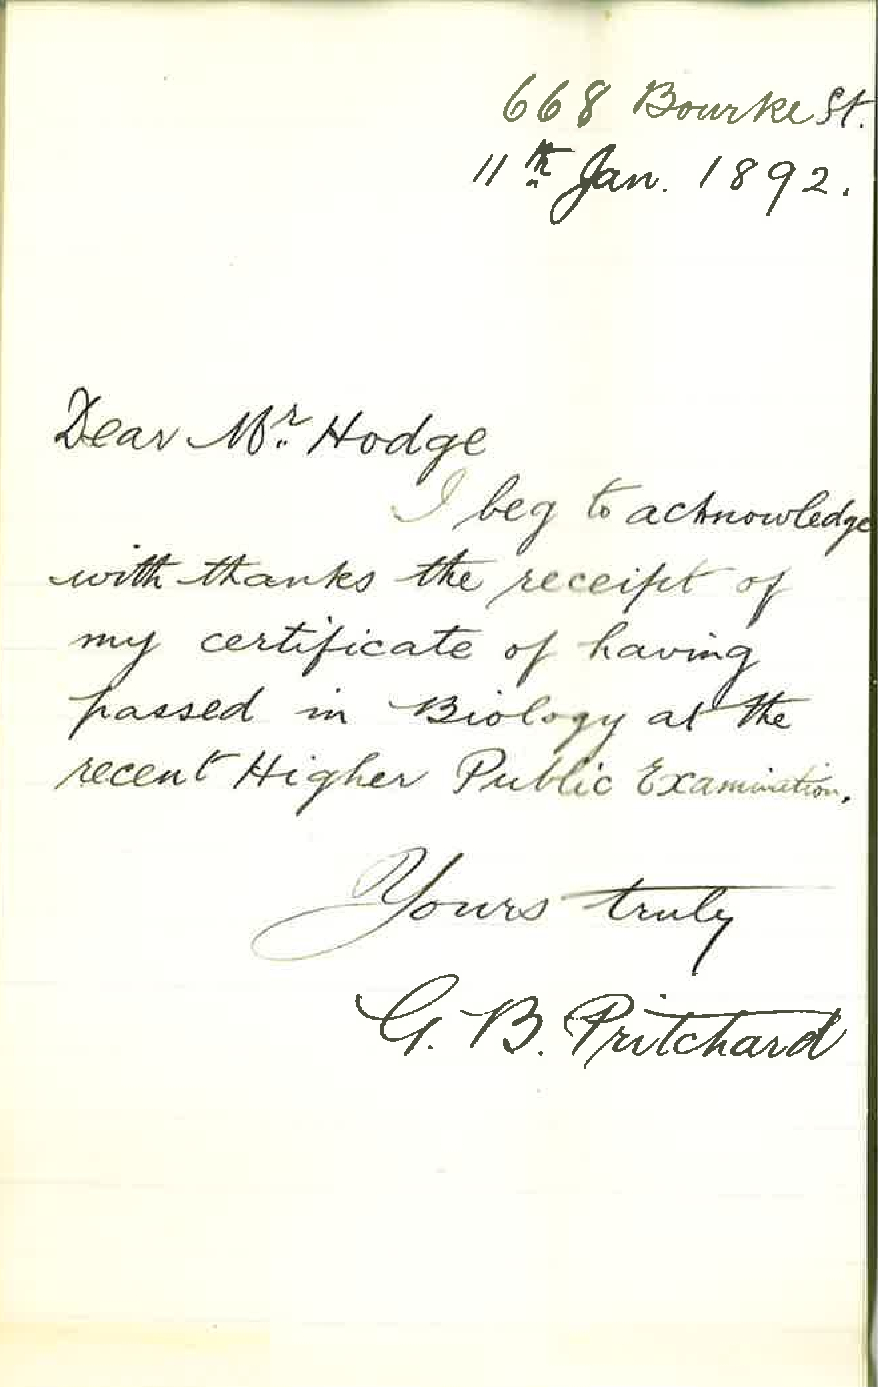 668 Bourke St.
11th Jan. 1892.
Dear Mr. Hodge
I beg to acknowledge
with thanks the receipt of
my certificate of having
passed in Biology at the
recent Higher Public Examination.
Yours truly
G. B. Pritchard